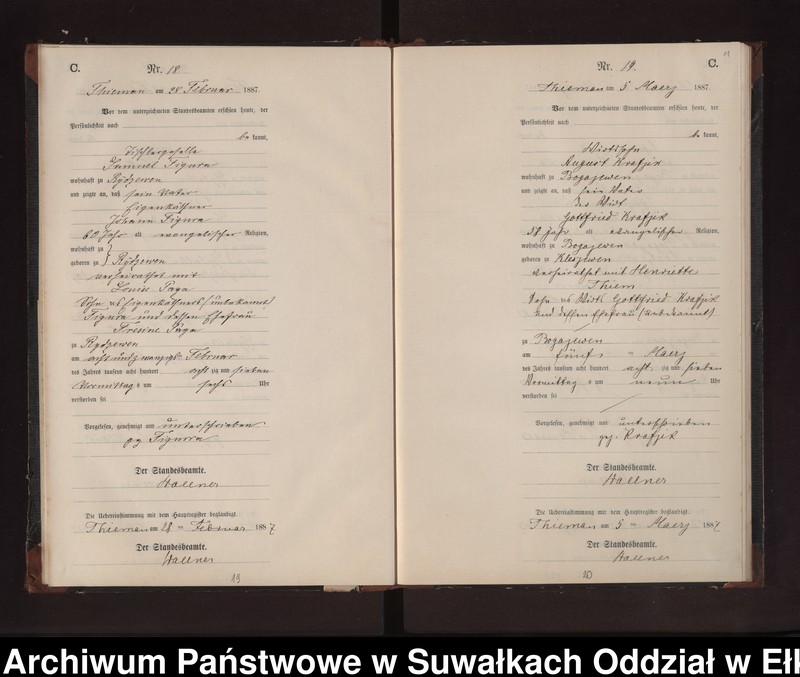 C. Nr. 18
Thieman am 28 Februar 1887.
Vor dem unterzeichneten Standesbeamten erschien heute, der
Persönlichkeit nach
be kannt,
Tischlergeselle
Samuel Figura
wohnhaft zu Rydzewen
und zeigte an, daß sein Vater
Eigenkäthner
Johann Figura
62 Jahr alt evangelischer Religion,
wohnhaft zu
geboren zu Rydzewen
verheirathet mit
Louise Paga
Sohn des Eigenkäthners (unbekannt)
Figura und dessen Ehefrau
Paga
zu Rydzewen
am acht und zwanzigsten Februar
des Jahres tausend acht hundert acht zig und sieben
Vormittag s um sechs Uhr
verstorben sei
Vorgelesen, genehmigt und unterschrieben
gez Figura
Der Standesbeamte.
Wallner
Die Uebereinstimmung mit dem Hauptregister beglaubigt.
Thieman am 28 ten Februar 1887
Der Standesbeamte.
Wallner
19
Nr. 19. C.
Thieman am 5 Maerz 1887.
Vor dem unterzeichneten Standesbeamten erschien heute, der
Persönlichkeit nach
be kannt,
Wirthssohn
August Krafzik
wohnhaft zu Bogazewen
und zeigte an, daß sein Vater
der Wirt
Gottfried Krafzik
Jahr alt evangelischer Religion,
wohnhaft zu Bogazewen
geboren zu
verheirathet mit Henriette
Thiem
Sohn des Wirts Gottfried Krafzik
und dessen Ehefrau (unbekannt)
zu Bogazewen
am fünf ten Maerz
des Jahres tausend acht hundert acht zig und sieben
Vormittag s um neun Uhr
verstorben sei
Vorgelesen, genehmigt und unterschrieben
gez. Krafzik
Der Standesbeamte.
Wallner
Die Uebereinstimmung mit dem Hauptregister beglaubigt.
Thieman am 5 ten Maerz 1887
Der Standesbeamte.
Wallner
20
Archiwum Państwowe w Suwałkach Oddział w Ełk